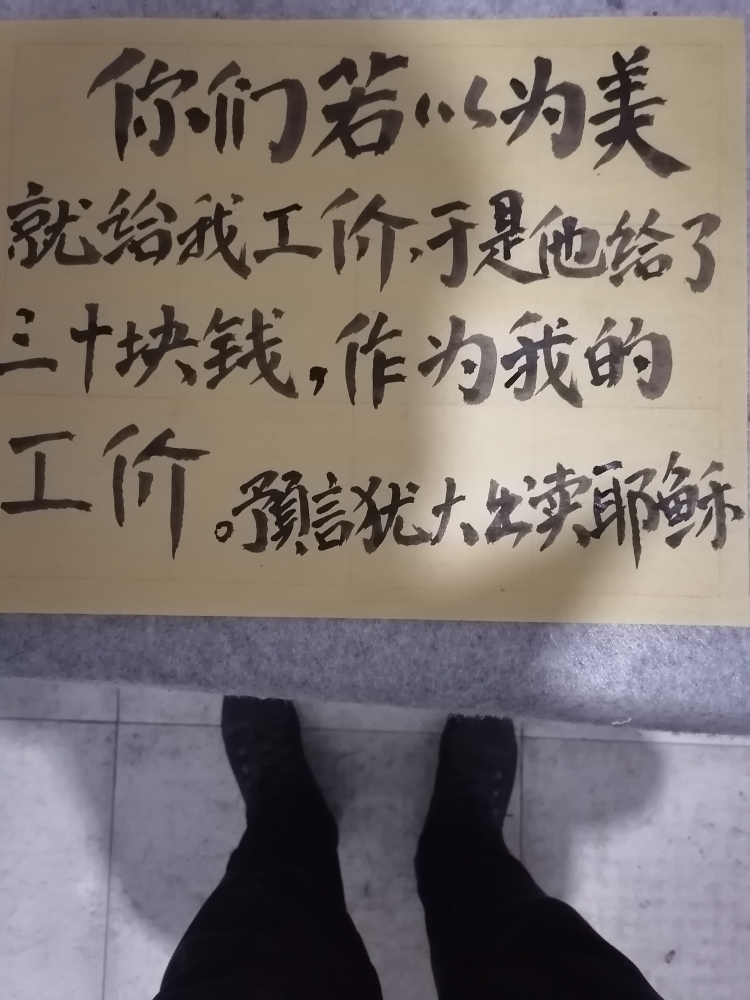 你们若以为美
就给我工价,于是他给了
三十块钱,作为我的
工价。預言犹大出卖耶稣